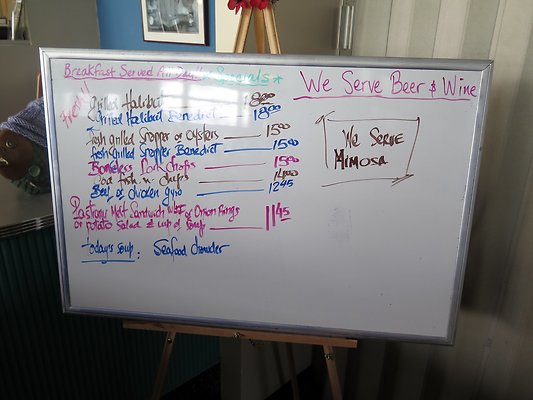 Breakfast Served All Day! Specials *
We Serve Beer & Wine
Fresh!!
Grilled Halibut 18.00
Grilled Halibut Benedict 18.00
Fresh grilled Snapper or oysters 15.00
Fresh Grilled Snapper Benedict 15.00
Boneless Pork Chops 15.00
Cod fish n chips 14.00
Beef or chicken gyro 12.45
Pastrami Melt Sandwich w/FF or Onion Rings
or potato Salad & cup of Soup 11.45
Today's soup: Seafood Chowder
We Serve
Mimosa